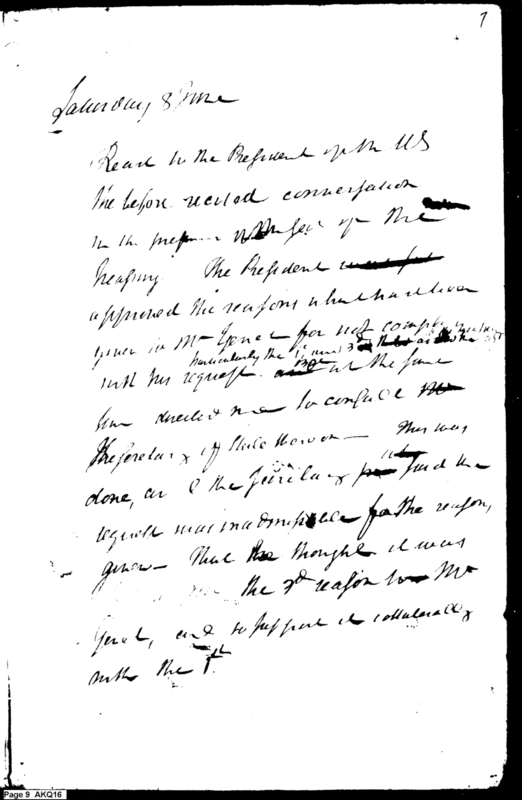 7
Saturday 8 June
Read to the President of the US
the before recited conversation
in the presence of the Sec: of the
Treasury. The President
approved the reasons which had been
given to Mr Genet for not complying
with his request particularly the 1st and 3d at the same
time directed me to consult
the Secretary of State thereon— This was
done, and the Secretary said the
request was inadmissible for the reasons
given— That he thought it was
the 3d reason to Mr
Genet, and to support it collaterally
with the 1st
Page 9 AKQ16